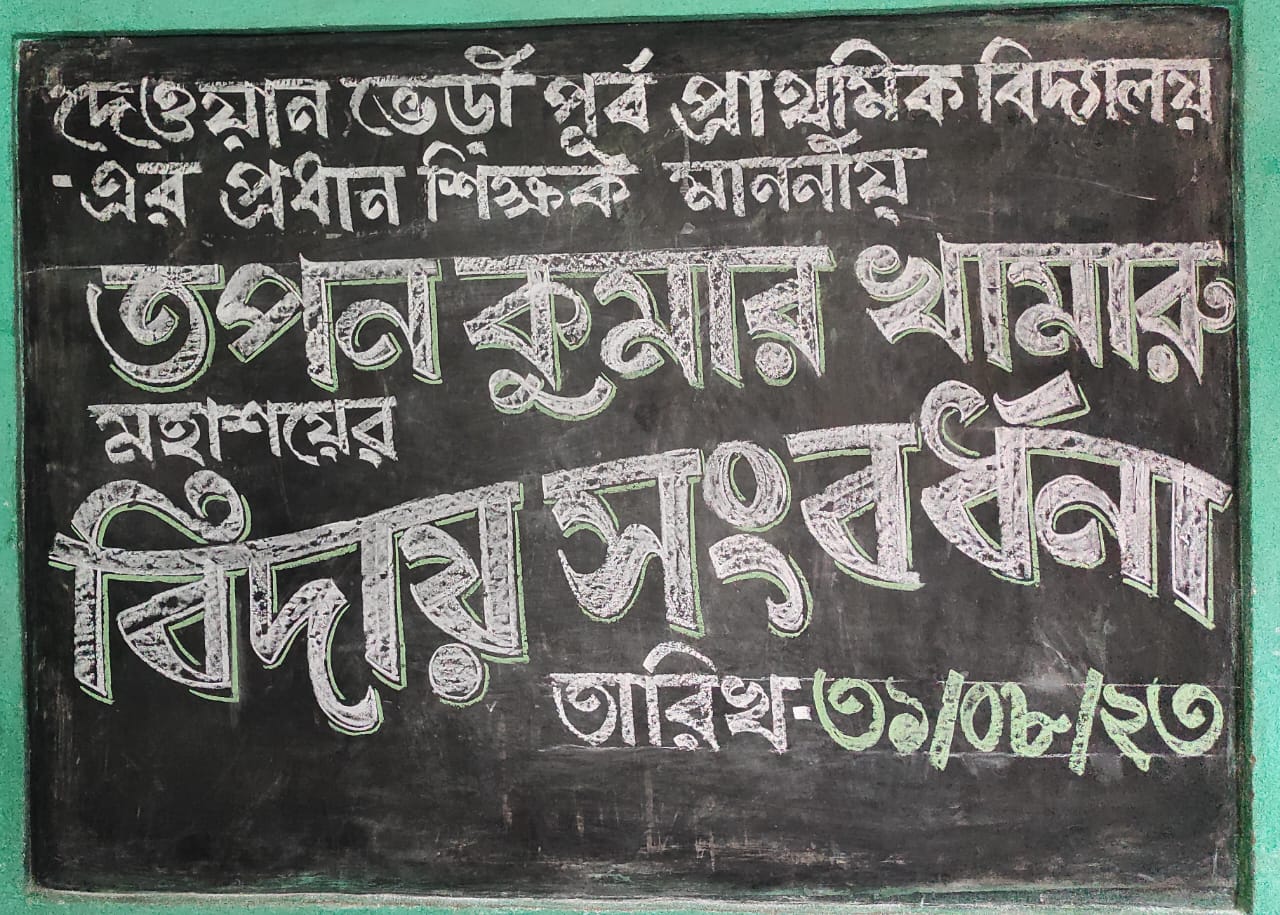 দেওয়ান ভেড়ী পূর্ব প্রাথমিক বিদ্যালয়
-এর প্রধান শিক্ষক মাননীয়
তপন কুমার খামারু
মহাশয়ের
বিদায় সংবর্ধনা
তারিখ-৩১/০৮/২৩